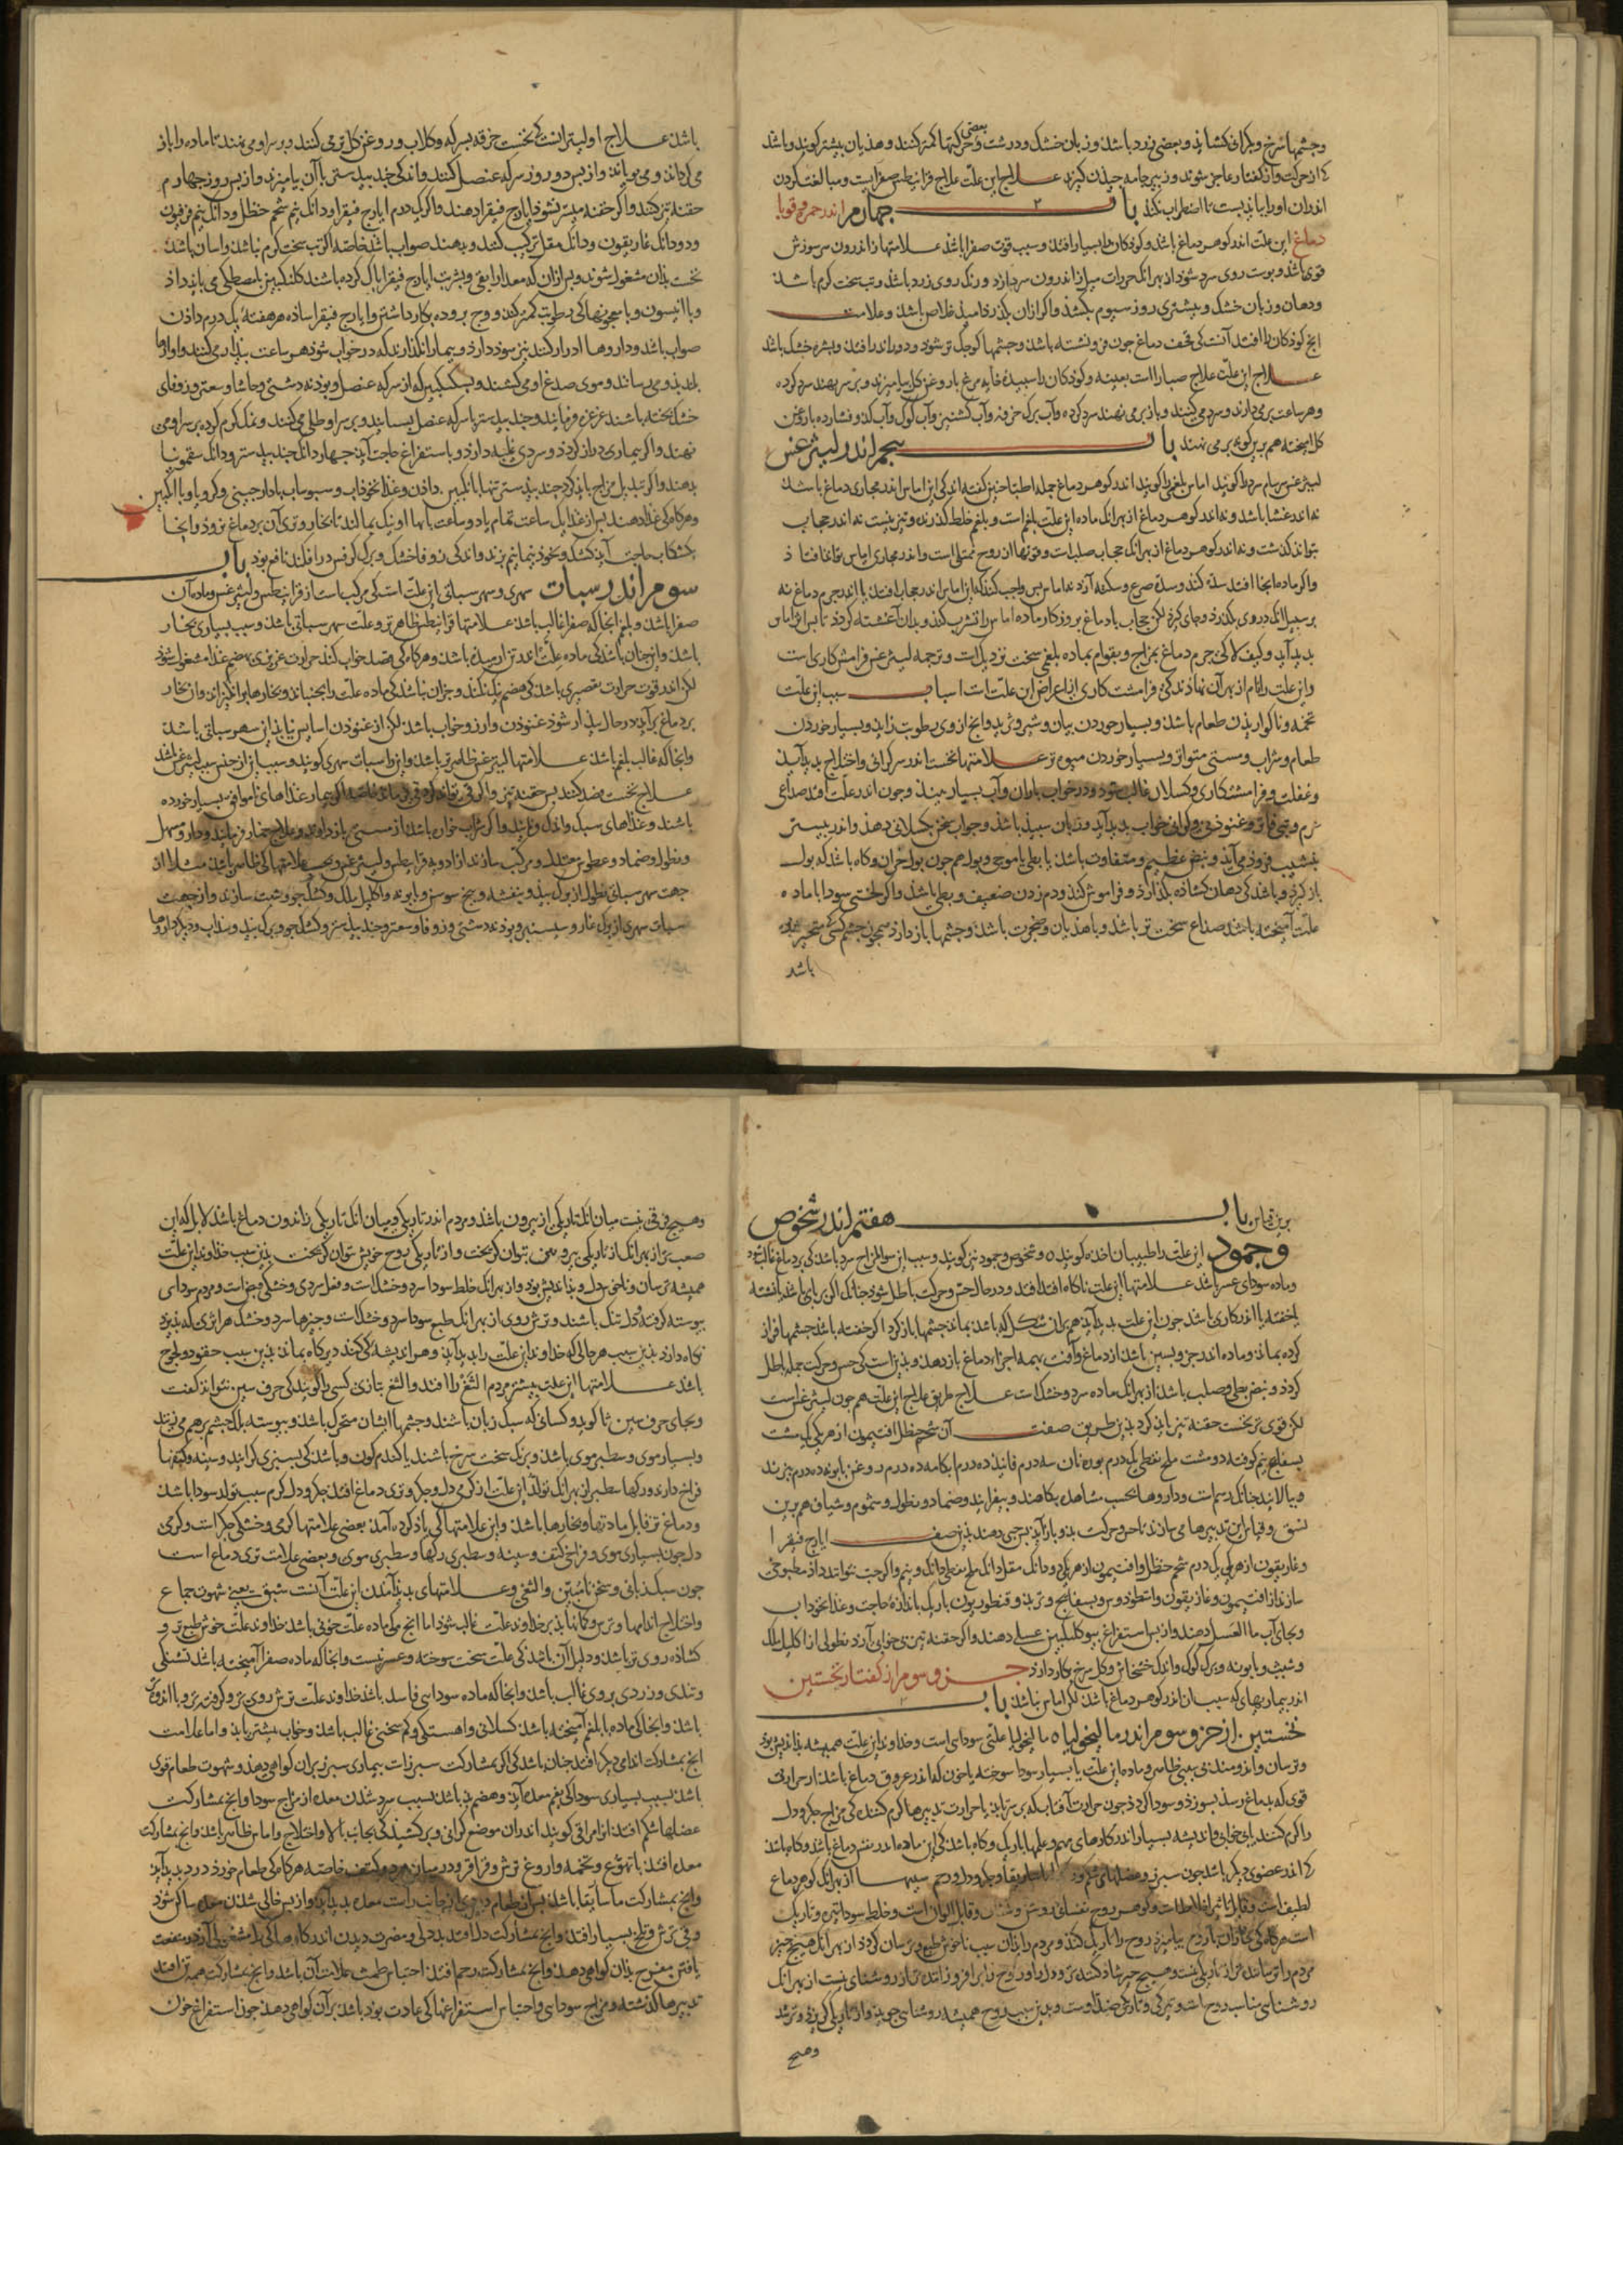 وچشمها سرخ و بکراف کشاید و بعضی زرد باشد و زبان خشک و درشت و حرکتها کمتر کنند و هذیان بیشتر کویند و باشد
کی از حرکت و از کفتار عاجز شوند و زبیر جامه چیدن کیرند علاج این علت علاج قرانیطس صفراست و مبالغت کردن
اندران او را باید بست تا اضطراب نکند باب چهارم اندر حمره و قوبا
دماغ این علت اندر کوهر دماغ باشد و کوذکان را بسیار افتد و سبب قوت صفرا باشد علامتها از اندرون سر سوزش
قوی باشد و پوست روی سرد شوذ از بهر انک حرارت میل از اندرون سر دارذ و رنک روی زرد باشد و تب سخت کرم باشد
ودهان و زبان خشک و بیشتری روز سیوم بکشد و اکر ازان بکذرذ امید خلاص باشد و علامت
انچ کوذکان را افتد آنست کی قحف دماغ جون فرونشسته باشد و چشمها کوچک تر شود و دور اندر افتد و بشره خشک باشد
علاج این علت علاج صبارا است بعینه و کوذکان را سبیدهٔ خایه مرغ با روغن کل بیامیزند و بر سر نهند سرد کرده
وهر ساعت بر می دارند و سرد می کنند و باز بر می نهند سرد کرده و آب برک خرفه و آب کشنیز و آب کوک و آب کدو فشارده با روغن
کل امیخته هم برین کونه بر می نهند باب پنجم اندر لیثرغس
لیثرغس سرسام سرد را کویند اماس بلغمی را کویند اندر کوهر دماغ جمله اطبا چنین کفته اند کی این اماس اندر مجاری دماغ باشد
نه اندر غشا باشد و نه اندر کوهر دماغ از بهر انک ماده این علت بلغم است و بلغم خلط کذرنده و تیز نیست نه اندر حجاب
بتواند کذشت و نه اندر کوهر دماغ از بهر انک حجاب صلب است و
واکر ماده انجا افتد سده کند و سدهٔ صرع و سکته آرد نه اماس پس واجب کند که این اماس اندر حجاب افتد یا اندر جرم دماغ نه
بر سبیل انک در وی بکذرذ و جای کیرد لکن حجاب یا دماغ بروزکار ماده اماس را تشرب کند و بدان آغشته کردذ تا پس ازان اماس
بدید آید و کیف لا کی جرم دماغ بمزاج و بقوام بماده بلغمی سخت نزدیک است و ترجمه لیثرغس فرامشت کاری است
واین علت را نام از بهر آن نهاذند کی فرامشت کاری از اعراض این علت است اسباب سبب این علت
تخمه و ناکواریذن طعام باشد و بسیار خوردن پیاز و شیر و ترید و انچ از وی رطوبت زاید و بسیار خوردن
طعام و شراب و مستی متواتر و بسیار خوردن میوهٔ تر علامتها نخست اندر سر کرانی و اختلاج بدید آید
وغفلت و فرامشتکاری و کسلان غالب شود و در خواب باران و آب بسیار بیند و چون اندر علت افتد صداعی
نرم و تبی فاتر و غنوذن و کرانی خواب بدید آید و زبان سبید باشد و جواب سخن بکسلانی دهد و اندر بستر
بنشیب فروذ می آید و نبض عظیم و متفاوت باشد یا بطی یا موجی و بول هم چون بول خران و کاه باشد که بول
باز کیرذ و باشد کی دهان کشاذه بکذارد و فراموش کند و دم زدن ضعیف و بطی باشد و اکر لختی سودا با ماده
علت آمیخته باشد صداع سخت تر باشد و با هذیان و ضجرت باشد و چشمها باز دارد همچون چشم کسی کی متحیر شوذ
باشد
باشد علاج اولیتر انست کی نخست خرقه بسرکه و کلاب و روغن کل تر می کنند و بر سر او می نهند تا ماده را باز
می کرداند و می بویانند و از پس دو روز سرکه عنصل کنند و اندکی جندبیدستر با آن بیامیزند و از پس روز چهارم
حقنه تیز کنند و اکر حقنه میسر نشوذ ایارج فیقرا دهند و اکر یک درم ایارج فیقرا و دانک نیم شحم حنظل و دانک نیم فرفیون
ودو دانک غاریقون و دانک مقل ترکیب کنند و بدهند صواب باشد خاصه اکر تب سخت کرم نباشد و اسان باشد
نخست بذان مشغول شوند و پس ازان که معده را بقی و بشربت ایارج فیقرا پاک کرده باشند کلنکبین بامصطکی می باید داد
وبا انیسون و با معجونهائی کی رطوبت کمتر کند و وج پرورده بکار داشتن و ایارج فیقرا ساذه هر هفته یک درم داذن
صواب باشد و داروها ادرار کنند نیز سوذ دارد و بیمار را نکذارند که در خواب شوذ هر ساعت بیدار می کنند و اوازها
بلند بذو می رسانند و موی صدغ او می کشند و بسکنکبین که از سرکه عنصل و پودنه دشتی و حاشا و سعتر و زوفای
خشک پخته باشند غرغره فرمایند و جندبیدستر با سرکه عنصل بسایند و بر سر او طلی می کنند و نمک کرم کرده بر سر او می
نهند و اکر بیماری دراز کردذ و سردی غلبه دارذ و باستفراغ حاجت آید چهار دانک جندبیدستر و دانک سقمونیا
بدهند و اکر تبدیل مزاج باید کرد جندبیدستر تنها با انکبین داذن و غذا نخوذاب و سبوساب با دارچینی و کرویا و با انکبین
وهر کاه کی غذا دهند پس از غذا یک ساعت تمام یا دو ساعت پایها او نیک بمالند تا بخار و تری آن بر دماغ نروذ و انجا
بکشکاب حاجت آید کشک و نخوذ نیمانیم پزند و اندکی زوفا خشک و برک کرفس در افکنند نافع بوذ باب
سوم اندر سبات سهری و سهر سباتی این علت است کی مرکب است از قرانیطس و لیثرغس و ماده آن
صفرا باشد و بلغم انجا که صفرا غالب باشد علامتها قرانیطس ظاهرتر و علت سهر سباتی باشد و سبب بسیاری بخار
باشد و این چنان باشد کی ماده علت اندر تن ارمیده باشد و هر کاه کی قصد خواب کند حرارت غریزی بهضم غذا مشغول شوذ
لکن اندر قوت حرارت تقصیری باشد کی هضم نیک نکند و جزان نباشد کی ماده علت را بجنباند و بخارها برانکیزاند و از بخار
بر دماغ برآید در حال بیدار شوذ غنوذن و ارزو خواب باشد لکن از غنوذن اسایش نیابد این سهر سباتی باشد
وانجا که غالب بلغم باشد علامتها لیثرغس ظاهرتر باشد و این را سبات سهری کویند و سبب این از جنس سبب لیثرغس باشد
علاج نخست فصد کنند پس حقنه تیز و اکر قی تواند کرد قی فرمایند خاصه اکر بیمار غذاهای ناموافق بسیار خورده
باشند و غذاهای سبک و اندک فرمایند و اکر شراب خوار باشد از مستی باز دارند
ونطول و ضماد و عطوس معتدل و مرکب سازند از ادویه قرانیطس و لیثرغس و بحسب علامتها کی ظاهر باشد مثلا از
جهت سهر سباتی نطول از برک بید و بنفشه و بیخ سوسن و بابونه و اکلیل ملک و کشک جو و شبت سازند و از جهت
سبات سهری از برک غار و سیسنبر و پودنه دشتی و زوفا و سعتر و جندبیدستر و کشک جو و برک بید و سذاب و دیکر داروها
برین قیاس باب هفتم اندر شخوص
وجمود این علت را طبیبان اخذه کویند و شخوص و جمود نیز کویند و سبب این سوءالمزاج سرد باشد کی بر دماغ غالب شود
وماده سودای عسر باشد علامتها این علت ناکاه افتد و در حال حس و حرکت باطل شوذ چنانک اکر بر پای باشد یا نشسته
یا خفته یا اندر کاری باشد چون این علت بدید آید هم بران شکل که باشد بماند چشمها باز کرده اکر خفته باشد چشمها فراز
کرده بماند و ماده اندر جزو پسین باشد از دماغ و آفت بهمه اجزاء دماغ باز دهد و بذین است کی حس و حرکت جمله باطل
کردذ و نبض بطی و صلب باشد از بهر انک ماده سرد و خشک است علاج طریق علاج این علت هم چون لیثرغس است
لکن قوی تر نخست حقنه تیز باید کرد بدین طریق صفت آن شحم حنظل افتیمون از هر یکی یک مشت
بسفایج نیم کوفته دو مشت ملح نفطی یک درم بوره نان سه درم فانید ده درم ابکامه ده درم روغن بابونه ده درم بپزند
وبپالایند چنانک رسم است و داروها بحسب مشاهده بکاهند و بیفزایند و ضماد و نطول و شموم و شیاف هم برین
نسق و قیاس این تدبیرها می سازند تا حس و حرکت بذو باز آید پس حبی دهند بذین صفت ایارج فیقرا
وغاریقون از هر یکی یک درم شحم حنظل و افتیمون از هر یکی دو دانک مقل دانک ملح نفطی دانک و نیم و اکر حب نتواند داد مطبوخی
سازند از افتیمون و غاریقون و اسطوخودوس و بسفایج و تربد و قنطوریون باریک باندازهٔ حاجت و غذا نخوداب
وبجای آب ماالعسل دهند و از پس استفراغ بیو کلنکبین عسلی دهند و اکر حقنه تیز بی خوابی آرد نطولی از اکلیل ملک
وشبث و بابونه و برک کوک و اندک خشخاش و کل سرخ بکار دارند جزو سوم از کفتار نخستین
اندر بیماریهای که سبب ان اندر کوهر دماغ باشد لکن اماس نباشد باب
نخستین از جزو سوم اندر مالیخولیا مالیخولیا علتی سودای است و خداوند این علت همیشه بداندیش بوذ
وترسان و اندوهمند بی سببی ظاهر و ماده این علت یا بسیار سودا سوخته یا خون که اندر عروق دماغ باشد از حرارتی
قوی که بدماغ رسد بسوزذ و سودا کردذ چون حرارت آفتاب که بر سر تابد یا حرارت تدبیرها کرم کننده کی مزاج جکر و دل
را کرم کند یا بی خوابی و اندیشه بسیار اندر کارهای مهم و علمها باریک و کاه باشد کی این ماده اندر نفس دماغ باشد و کاه باشد
کی اندر عضوی دیکر باشد چون سبرز و عضلهای شکم و
لطیف است و قابل تاثیر اخلاط است و کوهر روح نفسانی روشن و قابل الوان است و خلط سودا تیره و تاریک
است هر کاه کی بخار ان با روح بیامیزد روح را تاریک کند و مردم را بدان سبب ناخوش طبع و ترسان کردذ از بهر انک هیچ چیز
مردم را ترسانندهتر از تاریکی نیست و هیچ چیز شاذ کننده تر و دل را و روح را بر افروزانندهتر از روشنای نیست از بهر انک
روشنای مناسب روح است و تیرکی و تاریکی ضد اوست و بدین سبب روح همیشه روشنای جوید و از تاریکی کریزد و ترسد
وهیچ
وهیچ فرق نیست میان انک تاریکی از بیرون باشد و مردم اندر تاریکی و میان انک تاریکی ز اندرون دماغ باشد لا بل که این
صعب تر از بهر انک از تاریکی بیرونی بتوان کریخت و از تاریکی روح خویش نتوان کریخت بدین سبب خداوند این علت
همیشه ترسان و ناخوش دل و بداندیش بوذ و از بهر انک خلط سودا سرد و خشک است و فعل سردی و خشکی قبض است و مردم سودای
پیوسته کرفته و دل تنک باشند و ترش روی از بهر انک طبع سودا سرد و خشک است و چیزها سرد و خشک هر اثری که پذیرذ
نکاه دارد بذین سبب هر حالی که خداوند این علت را بدید آید و هر اندیشه کی کند دیرکاه بماند بدین سبب حقوذ و لجوج
باشد علامتها این علت بیشتر مردم الثغ را افتد و الثغ بتازی کسی را کویند کی حرف سین نتواند کفت
وبجای حرف سین ثا کوید و کسانی که سبک زبان باشند و چشمها ایشان متحرک باشد و پیوسته پلک چشم برهم می زنند
وبسیار موی و سطبر موی باشد و برنک سخت سرخ باشند یا کندم کون و باشد کی بسبزی کرایند و سینه و کتفها
فراخ دارند و رکها سطبر از بهر انک تولد این علت از کرمی دل و جکر و تری دماغ افتد جکر و دل کرم سبب تولد سودا باشد
ودماغ تر قابل مادتها و بخارها باشد و این علامتها کی یاذ کرده آمد بعضی علامتها کرمی و خشکی جکر است و کرمی
دل چون بسیاری موی و فراخی کتف و سینه و سطبری رکها و سطبری موی و بعضی علامت تری دماغ است
چون سبک زبانی و سخن ناشیرین و الثغی و علامتهای بدید آمدن این علت آنست شبق یعنی شهوت جماع
واختلاج اندامها و ترس و کمانها بد بر خداوند علت غالب شود اما انچ مر ماده علت خونی باشد خداوند علت خوش طبع تر و
کشاذه روی تر باشد و دلیل آن باشد کی علت سخت سوخته و عسر نیست و انجا که ماده صفرا آمیخته باشد تشنکی
وتندی و زردی بر وی غالب باشد و انجا که ماده سوداسی فاسد باشد خداوند علت ترش روی تر و کرفته تر و با اندوه
باشد و انجا کی ماده با بلغم آمیخته باشد کسلانی و اهستکی و کم سخنی غالب باشد و خواب بیشتر یابد و اما علامت
انچ بمشارکت اندامی دیکر افتد چنان باشد کی اکر بمشارکت سبرز است بیماری سبرز بران کواهی دهد و شهوت طعام قوی
باشد بسبب بسیاری سودا کی بفم معده آید و هضم بد باشد بسبب سرد شدن معده از مزاج سودا و انچ بمشارکت
عضلها شکم افتد انرا مراقی کویند اندران موضع کرانی و برکشیدکی بجانب بالا و اختلاج و اماس ظاهر باشد و انچ بمشارکت
معده افتد با تهوع و تخمه و اروغ ترش و قراقر و درد میان هر دو کتف خاصه هر کاه کی طعام خورد درد بدید آید
وانچ بمشارکت ماساریقا باشد پس از طعام دردی از جانب راست معده بدید آید و از پس خالی شدن معده ساکن شوذ
وقی ترش و تلخ بسیار افتد و انچ بمشارکت دل افتد
یافتن مفرح بذان کواهی دهد و انچ بمشارکت رحم افتد احتباس طمث علامت آن باشد و انچ بمشارکت همه تن افتد
تدبیرها کذشته و مزاج سودای و احتباس استفراغها کی عادت بوذ باشد بر آن کواهی دهد چون استفراغ خون